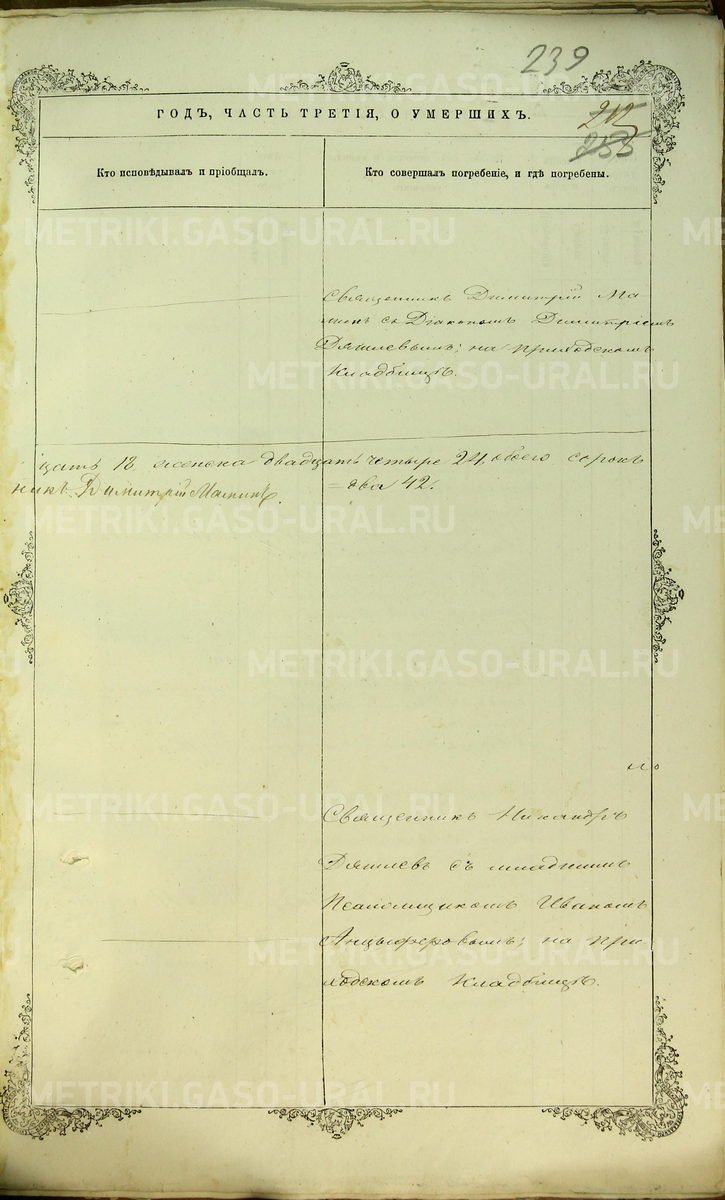 239
ГОДЪ, ЧАСТЬ ТРЕТІЯ, О УМЕРШИХЪ.
212
235
Кто исповѣдывалъ и пріобщалъ.
Кто совершалъ погребеніе, и гдѣ погребены.
METRIKI.GASO-URAL.RU
Священникъ Димитрій Ма-
минъ съ Діакономъ Димитріемъ
Дягилевымъ; на приходскомъ
Кладбищѣ.
цать 18 женска двадцать четыре 24, обоего сорокъ
никъ Димитрій Маминъ.
= два 42.
METRIKI.GASO-URAL.RU
Священникъ Никандръ
Дягилевъ съ младшимъ
Псаломщикомъ Иваномъ
Анцыферовымъ; на при
ходскомъ Кладбищѣ.
METRIKI.GASO-URAL.RU